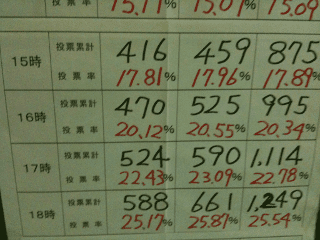 15.11% 15.07% 15.09
15時 投票累計 416 459 875
投票率 17.81% 17.96% 17.89%
16時 投票累計 470 525 995
投票率 20.12% 20.55% 20.34%
17時 投票累計 524 590 1,114
投票率 22.43% 23.09% 22.78%
18時 投票累計 588 661 1,249
投票率 25.17% 25.87% 25.54%